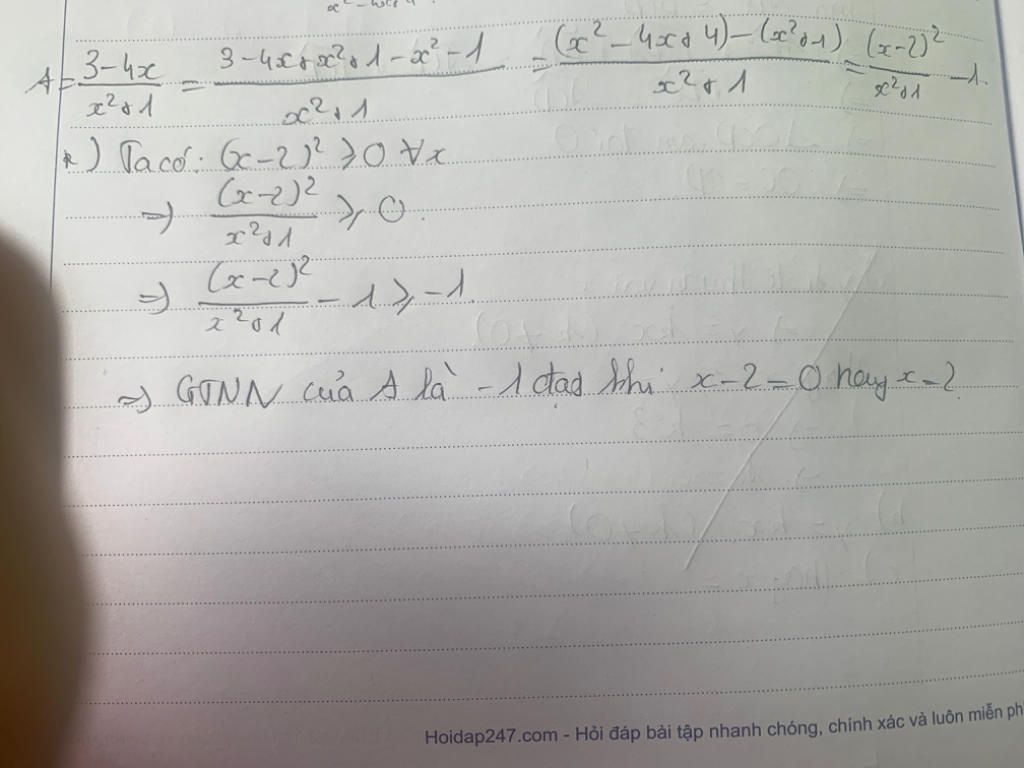 A = \frac{3-4x}{x^2+1} = \frac{3-4x+x^2+1-x^2-1}{x^2+1} = \frac{(x^2-4x+4)-(x^2+1)}{x^2+1} = \frac{(x-2)^2}{x^2+1} - 1.
*) Ta có: (x-2)^2 ⩾ 0 ∀x
=> \frac{(x-2)^2}{x^2+1} ⩾ 0.
=> \frac{(x-2)^2}{x^2+1} - 1 ⩾ -1.
=> GTNN của A là -1 đạt khi x-2=0 hay x=2
Hoidap247.com - Hỏi đáp bài tập nhanh chóng, chính xác và luôn miễn ph